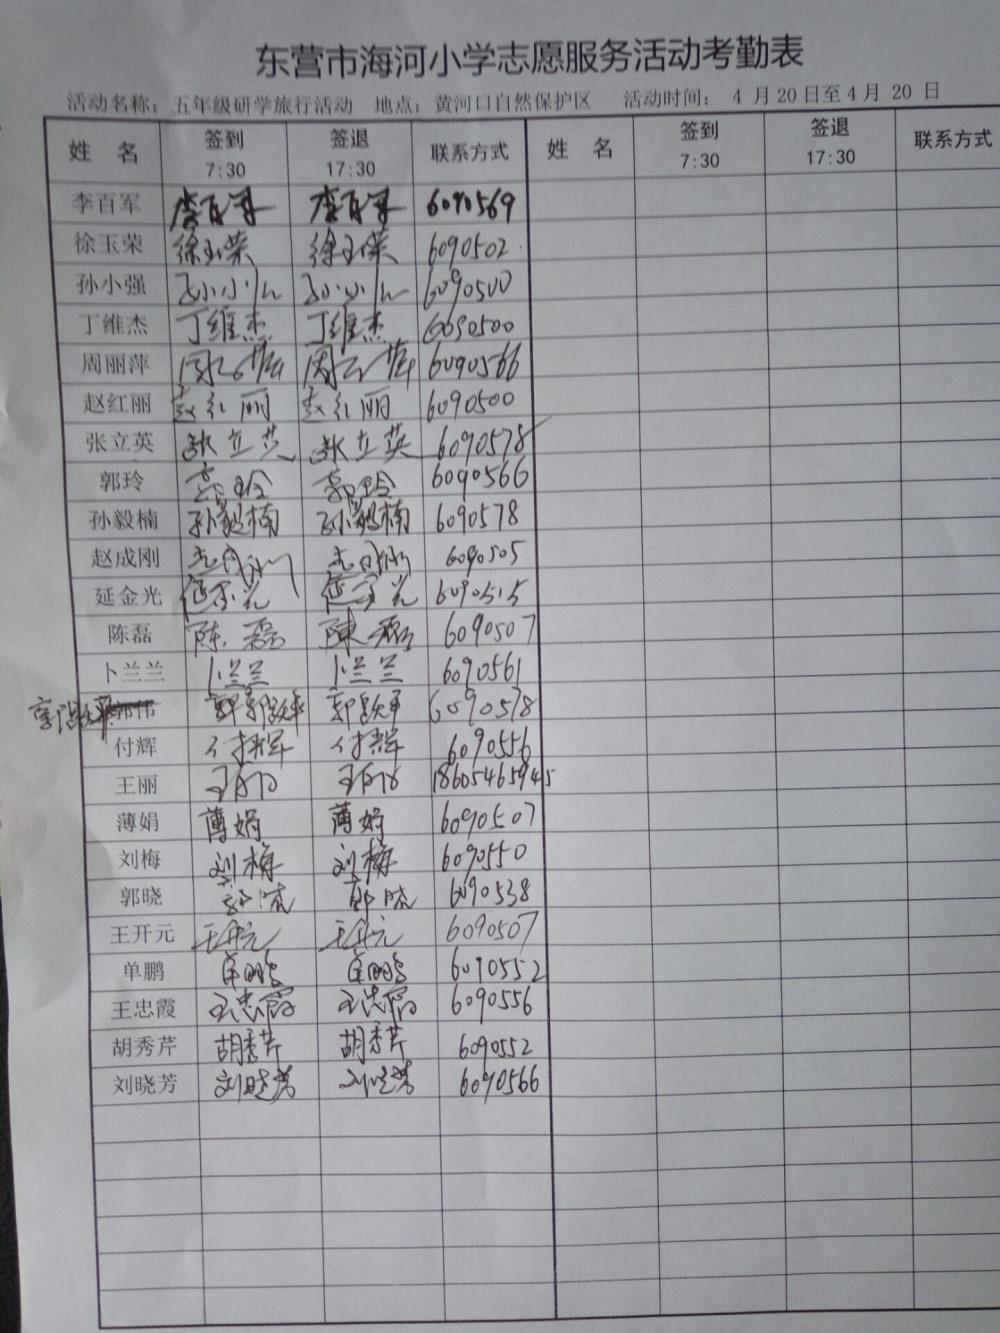 东营市海河小学志愿服务活动考勤表
活动名称：五年级研学旅行活动 地点：黄河口自然保护区 活动时间： 4 月 20 日至 4 月 20 日
姓 名 签到 7:30 签退 17:30 联系方式 姓 名 签到 7:30 签退 17:30 联系方式
李百军 李百军 李百军 6090569
徐玉荣 徐玉荣 徐玉荣 6090502
孙小强 孙小强 孙小强 6090500
丁维杰 丁维杰 丁维杰 6090500
周丽萍 周丽萍 周丽萍 6090566
赵红丽 赵红丽 赵红丽 6090500
张立英 张立英 张立英 6090578
郭玲 郭玲 郭玲 6090566
孙毅楠 孙毅楠 孙毅楠 6090578
赵成刚 赵成刚 赵成刚 6090505
延金光 延金光 延金光 6090515
陈磊 陈磊 陳磊 6090507
卜兰兰 卜兰兰 卜兰兰 6090561
郭伟 6090578
付辉 付辉 付辉 6090556
王丽 王丽 王丽 18605465945
薄娟 薄娟 薄娟 6090507
刘梅 刘梅 刘梅 6090550
郭晓 郭晓 郭晓 6090538
王开元 王开元 王开元 6090507
单鹏 单鹏 单鹏 6090552
王忠霞 王忠霞 王忠霞 6090556
胡秀芹 胡秀芹 胡秀芹 6090552
刘晓芳 刘晓芳 刘晓芳 6090566